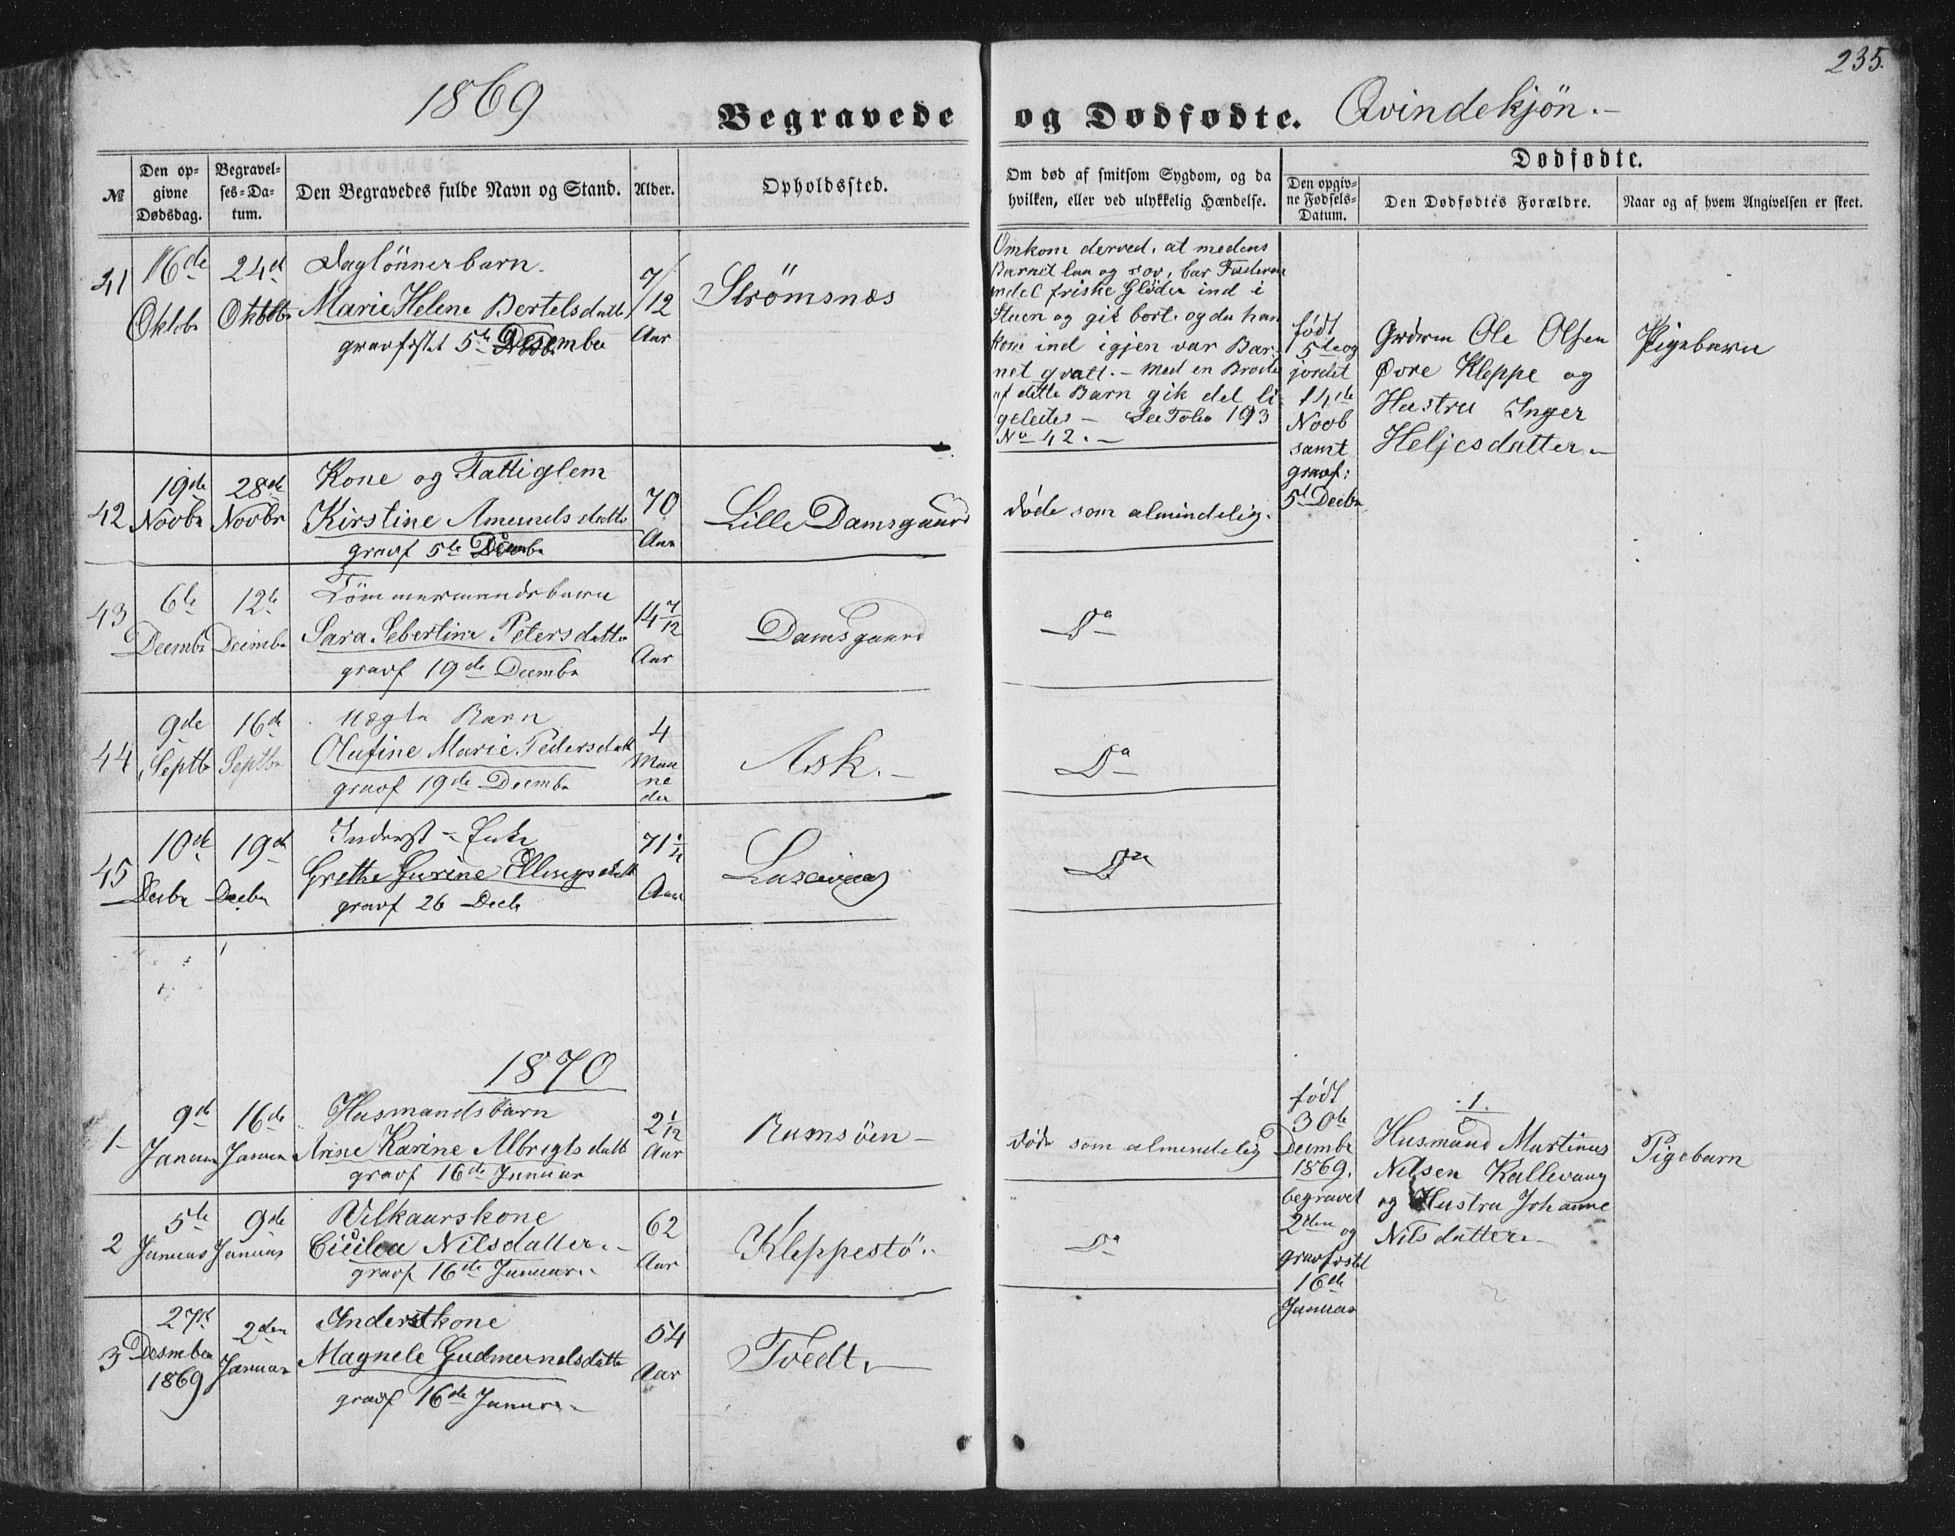 235.
1869
Begravede og Dødfødte. Qvindekjøn.-
№
Den opgivne Dødsdag.
Begravelses-Datum.
Den Begravedes fulde Navn og Stand.
Alder.
Opholdssted.
Om død af smitsom Sygdom, og da
hvilken, eller ved ulykkelig Hændelse.
Dødfødte.
Den opgivne Fødsels-Datum.
Den Dødfødtes Forældre.
Naar og af hvem Angivelsen er skeet.
41
16de
Oktobr
24d
Oktobr
Daglönnerbarn.
Marie Helene Bertelsdatt
gravfestet 5te
7/12
Aar
Strömsnæs
Omkom derved, at medens
Barnet laa og sov, bar Faderen
endel friske Glöder ind i
Stuen og gik bort, og da han
kom ind igjen var Bar-
net qvalt. - Med en Broder
af dette Barn gik det li-
geledes - See Folio 193
No 42. -
født
5te og
jordet
14de
Novb
samt
gravf:
5t Decbr
Grdrm Ole Olsen
Øvre Kleppe og
Hustru Inger
Heljesdatter.-
Pigebarn
42
19de
Novbr
28de
Novbr
Kone og Fattiglem
Kirstine Amundsdattr
gravf 5te Decmbr
70
Aar
Lille Damsgaard
døde som almindelig.
43
6te
Decmbr
12te
Decimbr
Tömmermandsbarn
Sara Sebertine Petersdatter
gravf 19de Decmbr
14 7/12
Aar
Damsgaard
Do
44
9de
Septbr
16de
Septbr
Uægte Barn
Olufine Marie Pedersdatt
gravf 19de Decmbr
4
Maa
ne
der
Ask.-
Do
45
10de
Decbr
19de
Decbr
Inderst - Enke
Grethe Gurine Ellingsdatt
gravf 26 Decb
71
Aar
Do
1870
1
9d
Januar
16de
Januar
Husmandsbarn
Arine Karine Albrigtsdatt
gravf 16de Januar
2 1/12
Aar
Ramsöen -
døde som almindelig
født
30te
Decmbr
1869.
begravet
2den og
gravfestet
16de
Januar
1.
Husmand Martinus
Nilsen Kallevaag
og Hustru Johanne
Nilsdatter.-
Pigebarn
2
5te
Januar
9de
Januar
Vilkaarskone
Cicilea Nilsdatter.-
gravf 16de Januar.
62
Aar
Kleppestö.
Do
3
27de
Desmber
1869
2den
Januar
Inderstkone
Magnele Gudmundsdatte
gravf 16de Januar.-
54
Aar
Tvedt.-